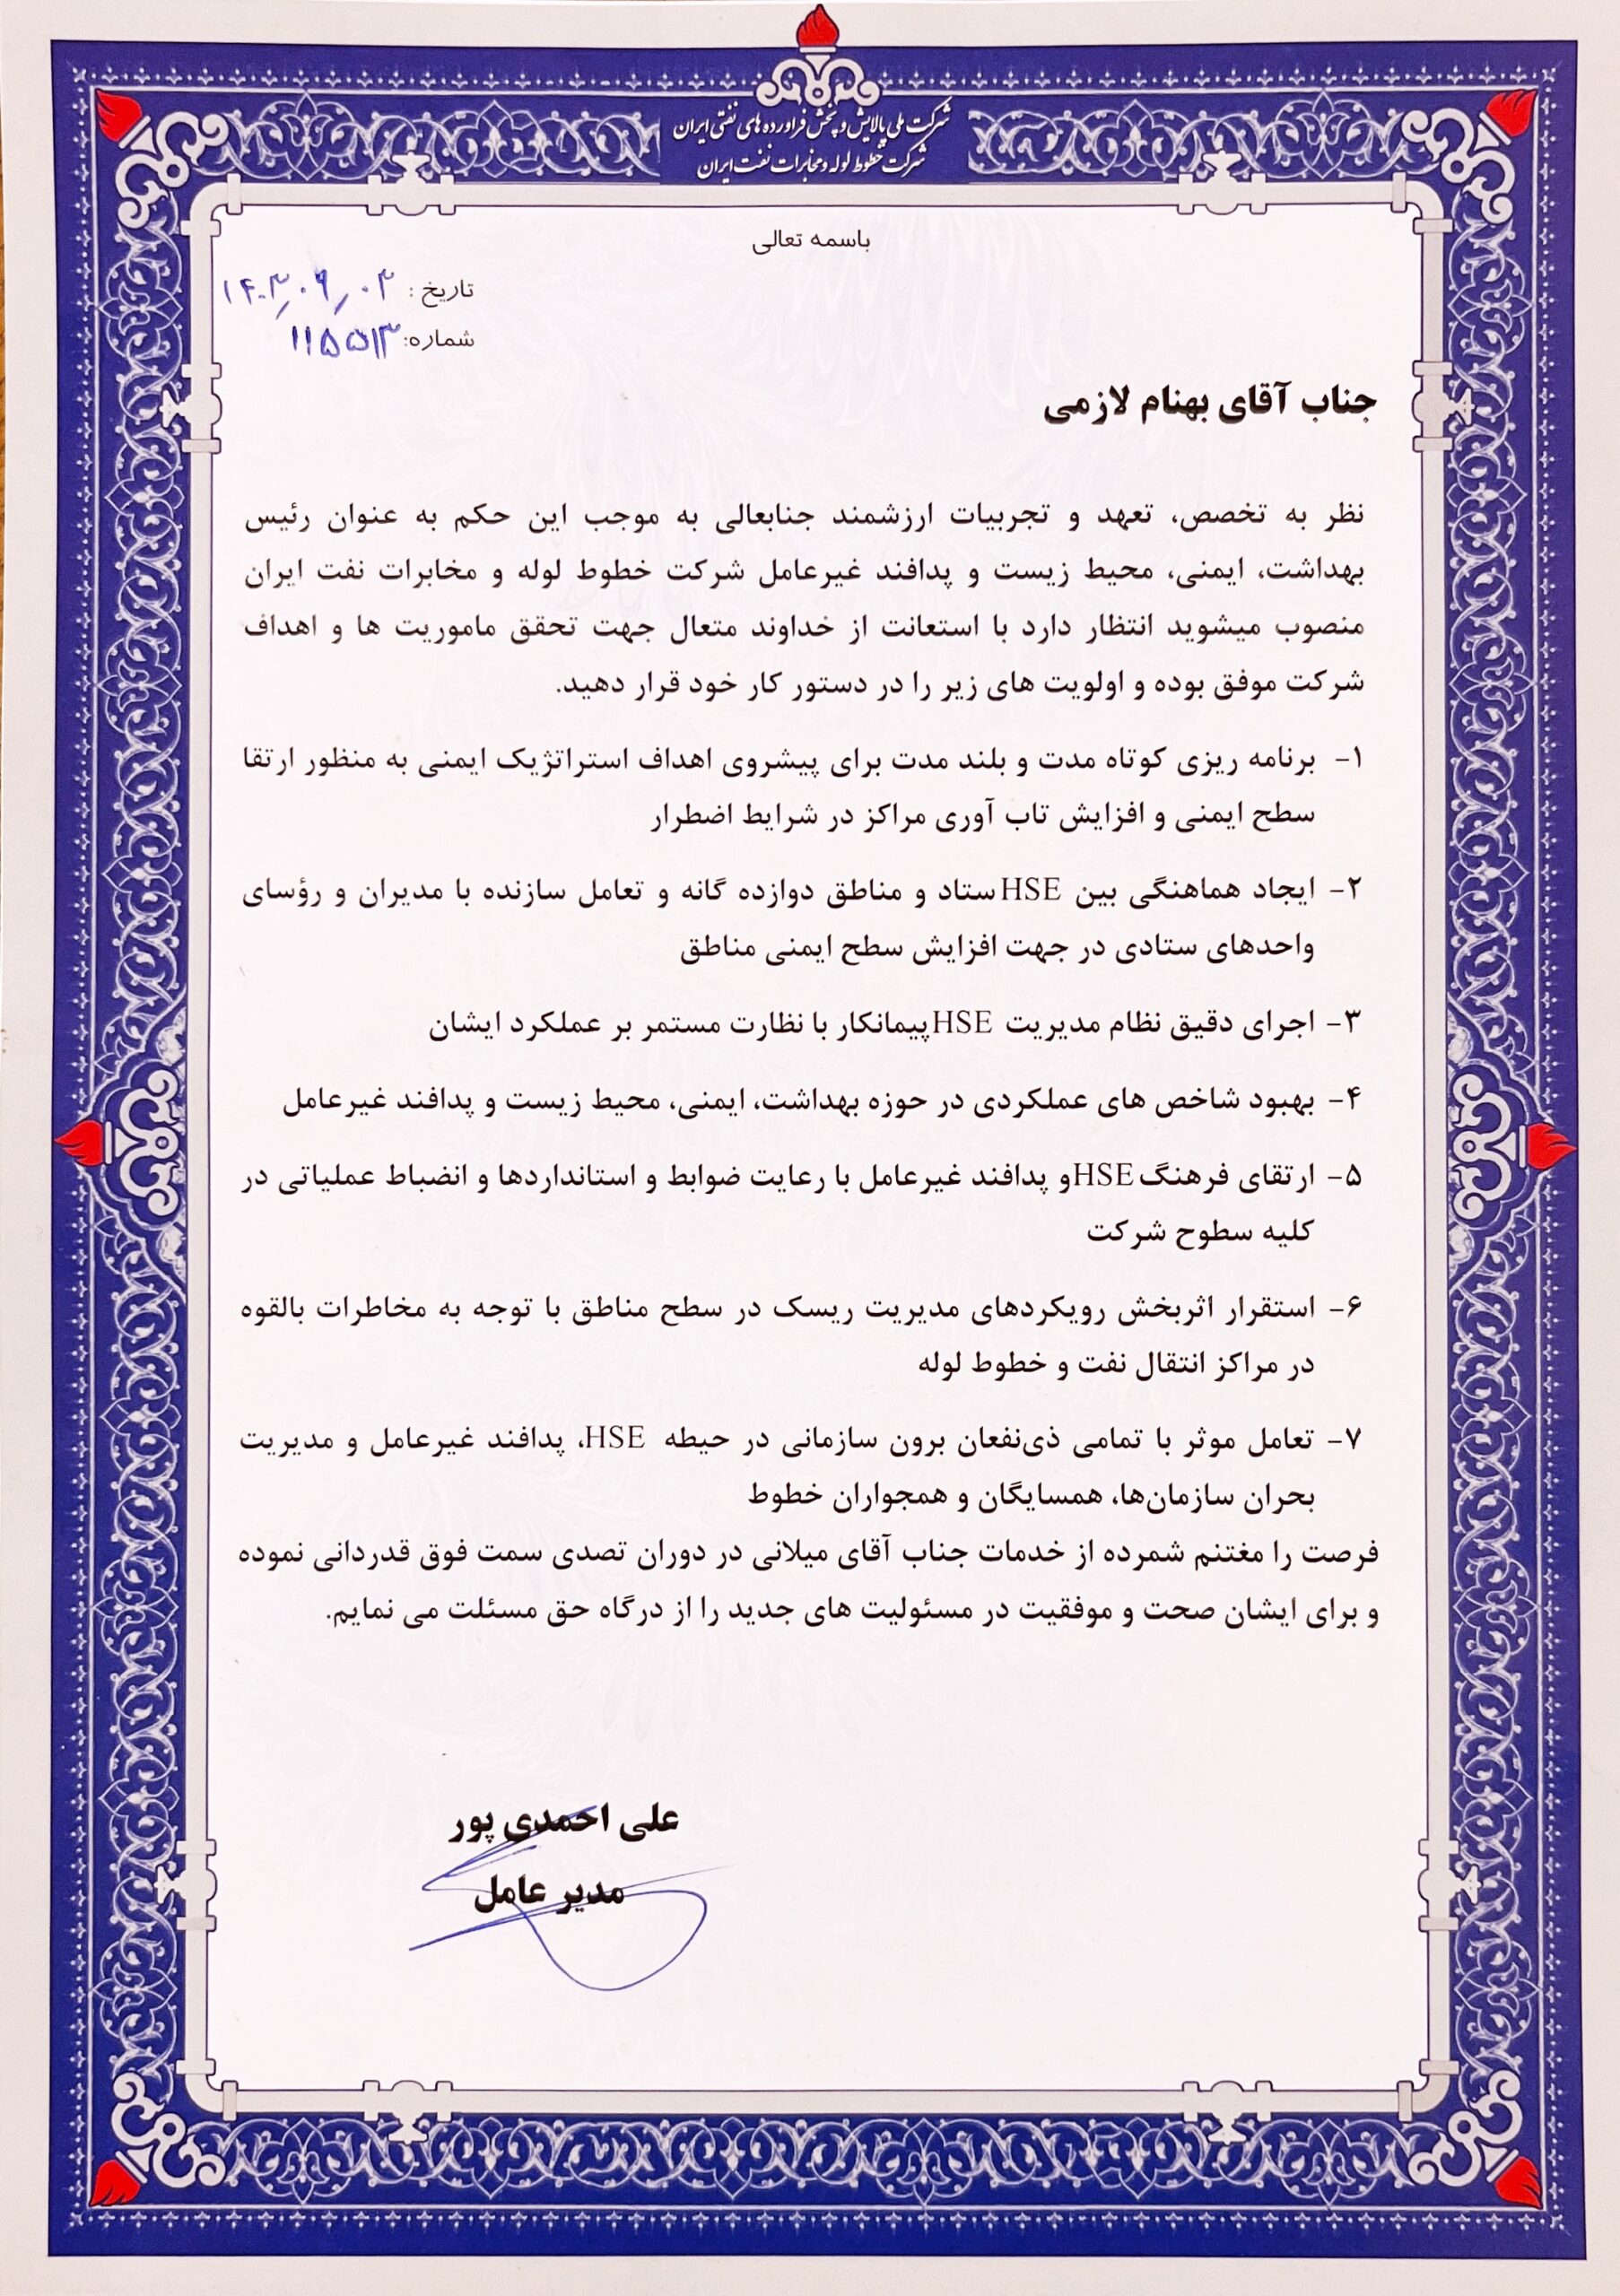 شرکت ملی پالایش و پخش فراورده های نفتی ایران
شرکت خطوط لوله و مخابرات نفت ایران
باسمه تعالی
تاریخ : ۱۴۰۳٫۰۹٫۰۳
شماره: ۱۱۵۵۱۳
جناب آقای بهنام لازمی
نظر به تخصص، تعهد و تجربیات ارزشمند جنابعالی به موجب این حکم به عنوان رئیس
بهداشت، ایمنی، محیط زیست و پدافند غیرعامل شرکت خطوط لوله و مخابرات نفت ایران
منصوب میشوید انتظار دارد با استعانت از خداوند متعال جهت تحقق ماموریت ها و اهداف
شرکت موفق بوده و اولویت های زیر را در دستور کار خود قرار دهید.
۱- برنامه ریزی کوتاه مدت و بلند مدت برای پیشروی اهداف استراتژیک ایمنی به منظور ارتقا
سطح ایمنی و افزایش تاب آوری مراکز در شرایط اضطرار
۲- ایجاد هماهنگی بین HSE ستاد و مناطق دوازده گانه و تعامل سازنده با مدیران و رؤسای
واحدهای ستادی در جهت افزایش سطح ایمنی مناطق
۳- اجرای دقیق نظام مدیریت HSE پیمانکار با نظارت مستمر بر عملکرد ایشان
۴- بهبود شاخص های عملکردی در حوزه بهداشت، ایمنی، محیط زیست و پدافند غیرعامل
۵- ارتقای فرهنگ HSE و پدافند غیرعامل با رعایت ضوابط و استانداردها و انضباط عملیاتی در
کلیه سطوح شرکت
۶- استقرار اثربخش رویکردهای مدیریت ریسک در سطح مناطق با توجه به مخاطرات بالقوه
در مراکز انتقال نفت و خطوط لوله
۷- تعامل موثر با تمامی ذی‌نفعان برون سازمانی در حیطه HSE، پدافند غیرعامل و مدیریت
بحران سازمان‌ها، همسایگان و همجواران خطوط
فرصت را مغتنم شمرده از خدمات جناب آقای میلانی در دوران تصدی سمت فوق قدردانی نموده
و برای ایشان صحت و موفقیت در مسئولیت های جدید را از درگاه حق مسئلت می نمایم.
علی احمدی پور
مدیر عامل